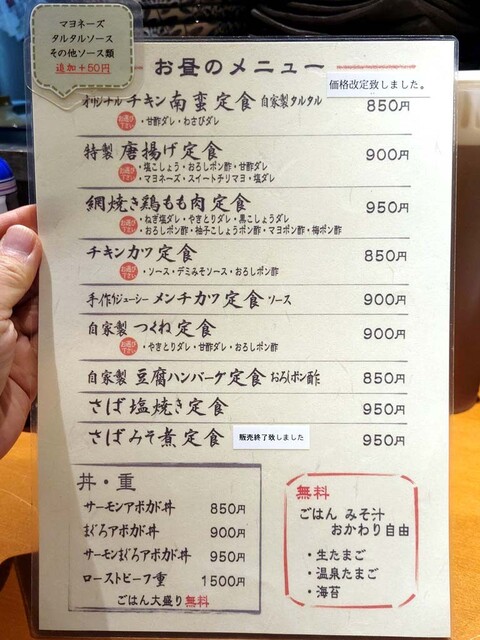 マヨネーズ
タルタルソース
その他ソース類
追加+50円
お昼のメニュー
価格改定致しました。
オリジナル チキン南蛮定食 自家製タルタル 850円
お選び下さい ・甘酢ダレ・わさびダレ
特製 唐揚げ定食 900円
お選び下さい ・塩こしょう・おろしポン酢・甘酢ダレ
・マヨネーズ・スイートチリマヨ・塩ダレ
網焼き鶏もも肉定食 950円
お選び下さい ・ねぎ塩ダレ・やきとりダレ・黒こしょうダレ
・おろしポン酢・柚子こしょうポン酢・マヨポン酢・梅ポン酢
チキンカツ定食 850円
お選び下さい ・ソース・デミみそソース・おろしポン酢
手作りジューシー メンチカツ定食 ソース 900円
自家製 つくね定食 900円
お選び下さい ・やきとりダレ・甘酢ダレ・おろしポン酢
自家製 豆腐ハンバーグ定食 おろしポン酢 850円
さば塩焼き定食 950円
さばみそ煮定食 販売終了致しました 950円
丼・重
サーモンアボカド丼 850円
まぐろアボカド丼 900円
サーモンまぐろアボカド丼 950円
ローストビーフ重 1500円
ごはん大盛り無料
無料
ごはん みそ汁
おかわり自由
・生たまご
・温泉たまご
・海苔